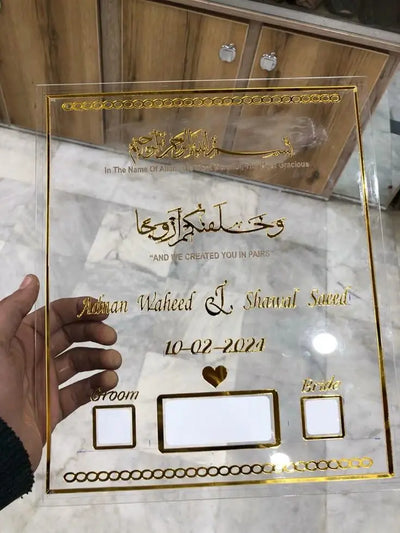 بسم الله الرحمن الرحيم
In The Name Of Allah Gracious
وخلقنكم أزوجا
"AND WE CREATED YOU IN PAIRS"
Adnan Waheed & Shawal Saeed
10-02-2024
Groom Bride